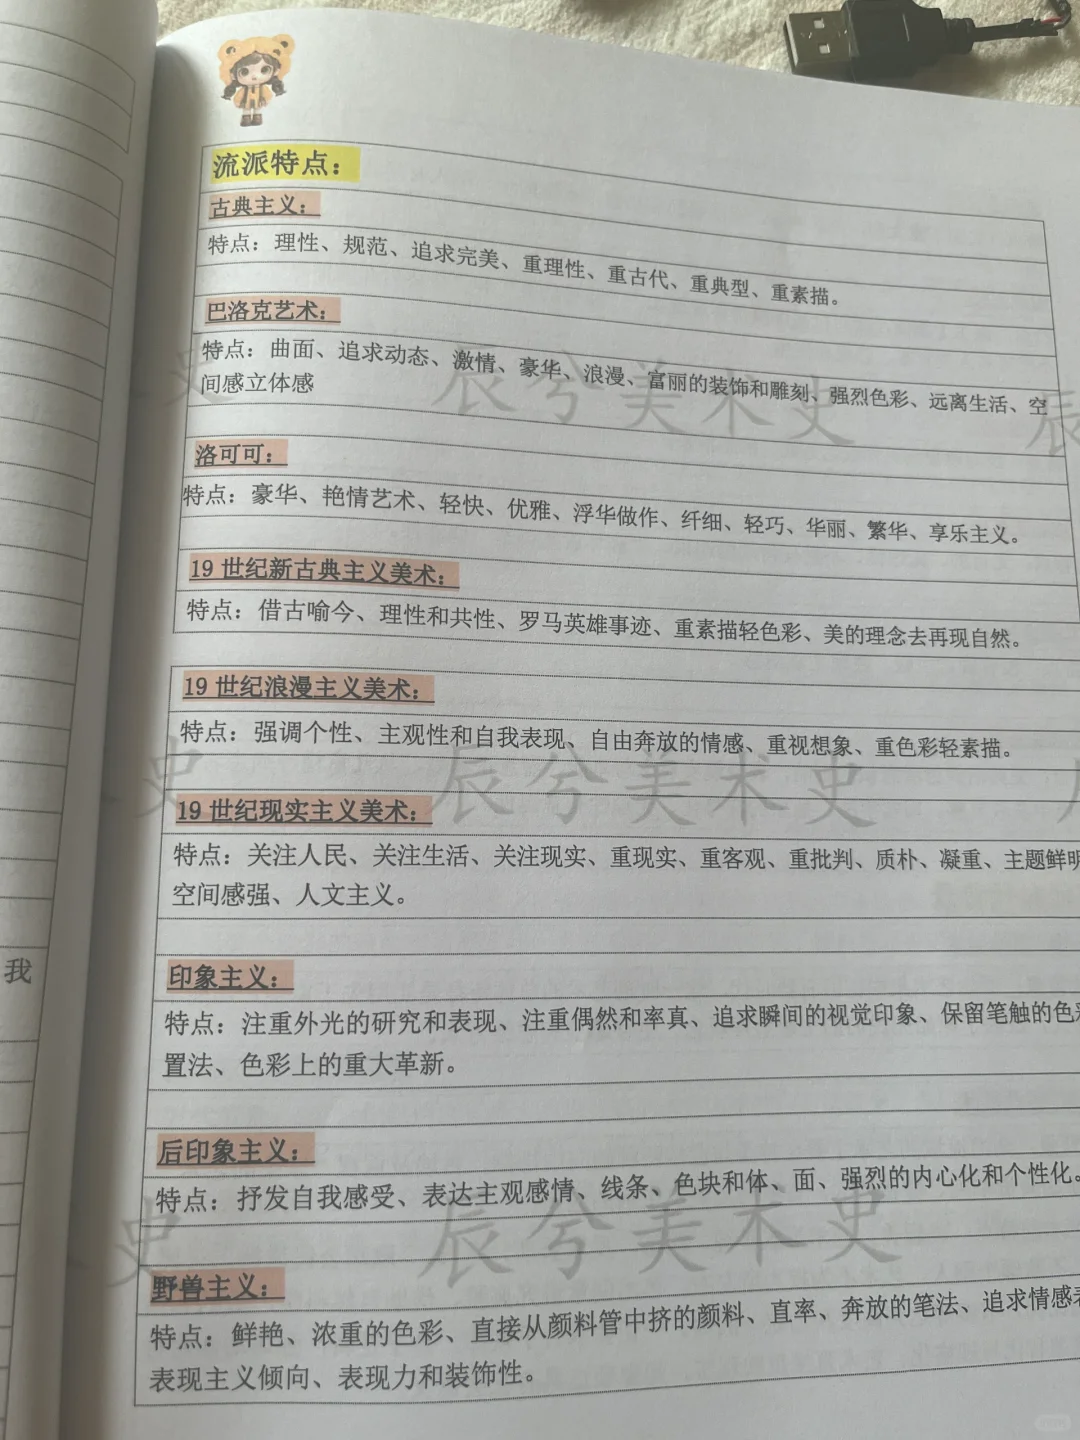 流派特点：
古典主义：
特点：理性、规范、追求完美、重理性、重古代、重典型、重素描。
巴洛克艺术：
特点：曲面、追求动态、激情、豪华、浪漫、富丽的装饰和雕刻、强烈色彩、远离生活、空
间感立体感
洛可可：
特点：豪华、艳情艺术、轻快、优雅、浮华做作、纤细、轻巧、华丽、繁华、享乐主义。
19 世纪新古典主义美术：
特点：借古喻今、理性和共性、罗马英雄事迹、重素描轻色彩、美的理念去再现自然。
19 世纪浪漫主义美术：
特点：强调个性、主观性和自我表现、自由奔放的情感、重视想象、重色彩轻素描。
19 世纪现实主义美术：
特点：关注人民、关注生活、关注现实、重现实、重客观、重批判、质朴、凝重、主题鲜明
空间感强、人文主义。
我
印象主义：
特点：注重外光的研究和表现、注重偶然和率真、追求瞬间的视觉印象、保留笔触的色彩
置法、色彩上的重大革新。
后印象主义：
特点：抒发自我感受、表达主观感情、线条、色块和体、面、强烈的内心化和个性化。
野兽主义：
特点：鲜艳、浓重的色彩、直接从颜料管中挤的颜料、直率、奔放的笔法、追求情感表
表现主义倾向、表现力和装饰性。
史 辰兮美术史 辰
史 辰兮美术史
史 辰兮美术史